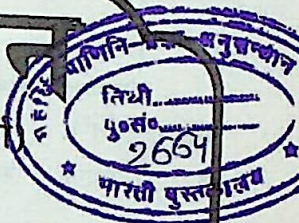 पाणिनि-
अनुसन्धान
तिथी..............
पु०सं०..............
2664
भारती पुस्तकालय